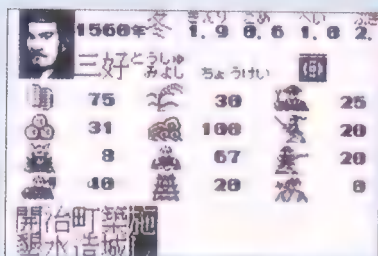 1560年 冬 きん りょう こめ へい
1.9 0.6 1.0 2.
三好 とうしゅ みよし ちょうけい
75 30 25
31 100 20
8 67 20
40 20 0
開 治 町 築 施
墾 水 造 城